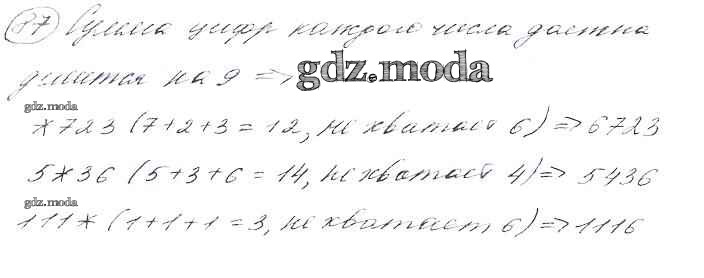 87 Сумма цифр каждого числа должна
делится на 9 => gdz.moda
gdz.moda
*723 (7+2+3=12, не хватает 6) => 6723
5*36 (5+3+6=14, не хватает 4) => 5436
gdz.moda
111* (1+1+1=3, не хватает 6) => 1116